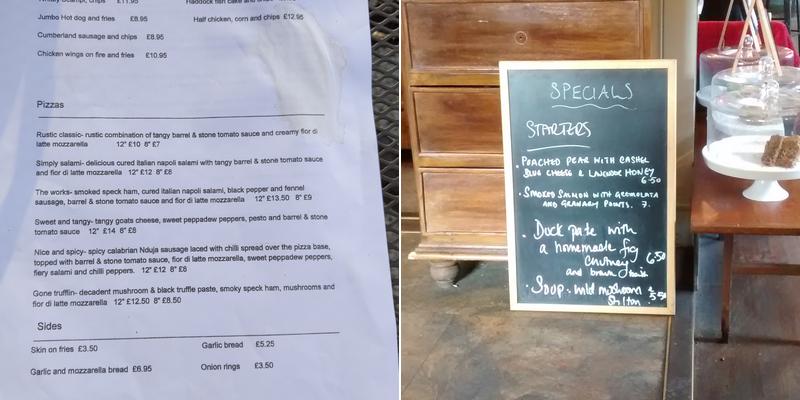 chips £11.95
Haddock fish cake and chips
Jumbo Hot dog and fries £8.95
Half chicken, corn and chips £12.95
Cumberland sausage and chips £8.95
Chicken wings on fire and fries £10.95
Pizzas
Rustic classic- rustic combination of tangy barrel & stone tomato sauce and creamy fior di
latte mozzarella 12" £10 8" £7
Simply salami- delicious cured italian napoli salami with tangy barrel & stone tomato sauce
and fior di latte mozzarella 12" £12 8" £8
The works- smoked speck ham, cured italian napoli salami, black pepper and fennel
sausage, barrel & stone tomato sauce and fior di latte mozzarella 12" £13.50 8" £9
Sweet and tangy- tangy goats cheese, sweet peppadew peppers, pesto and barrel & stone
tomato sauce 12" £14 8" £8
Nice and spicy- spicy calabrian Nduja sausage laced with chilli spread over the pizza base,
topped with barrel & stone tomato sauce, fior di latte mozzarella, sweet peppadew peppers,
fiery salami and chilli peppers. 12" £12 8" £8
Gone trufflin- decadent mushroom & black truffle paste, smoky speck ham, mushrooms and
fior di latte mozzarella 12" £12.50 8" £8.50
Sides
Skin on fries £3.50
Garlic bread £5.25
Garlic and mozzarella bread £6.95
Onion rings £3.50
SPECIALS
STARTERS
• POACHED PEAR WITH CASHEL
BLUE CHEESE & LAVENDER HONEY
6.50
• SMOKED SALMON WITH GREMOLATA
AND GRANARY POINTS. 7.
• Duck pate with
a homemade fig
chutney 6.50
and brown toast
• Soup - wild mushroom &
Stilton 5.50